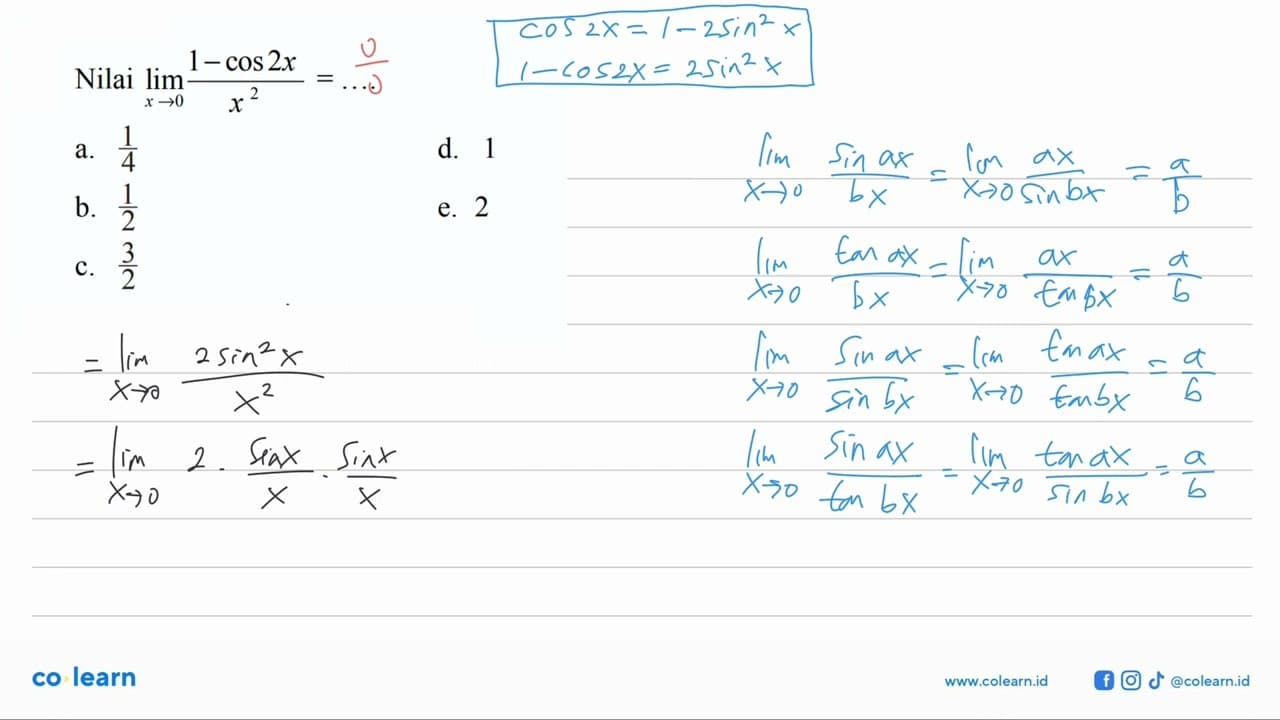 Nilai lim x→0 (1 − cos 2x)/x² = .... 0/0
a. 1/4
b. 1/2
c. 3/2
d. 1
e. 2
cos 2x = 1 − 2 sin² x
1 − cos 2x = 2 sin² x
= lim x→0 2 sin² x / x²
= lim x→0 2 . sin x / x . sin x / x
lim x→0 sin ax / bx = lim x→0 ax / sin bx = a/b
lim x→0 tan ax / bx = lim x→0 ax / tan bx = a/b
lim x→0 sin ax / sin bx = lim x→0 tan ax / tan bx = a/b
lim x→0 sin ax / tan bx = lim x→0 tan ax / sin bx = a/b
co learn
www.colearn.id
@colearn.id